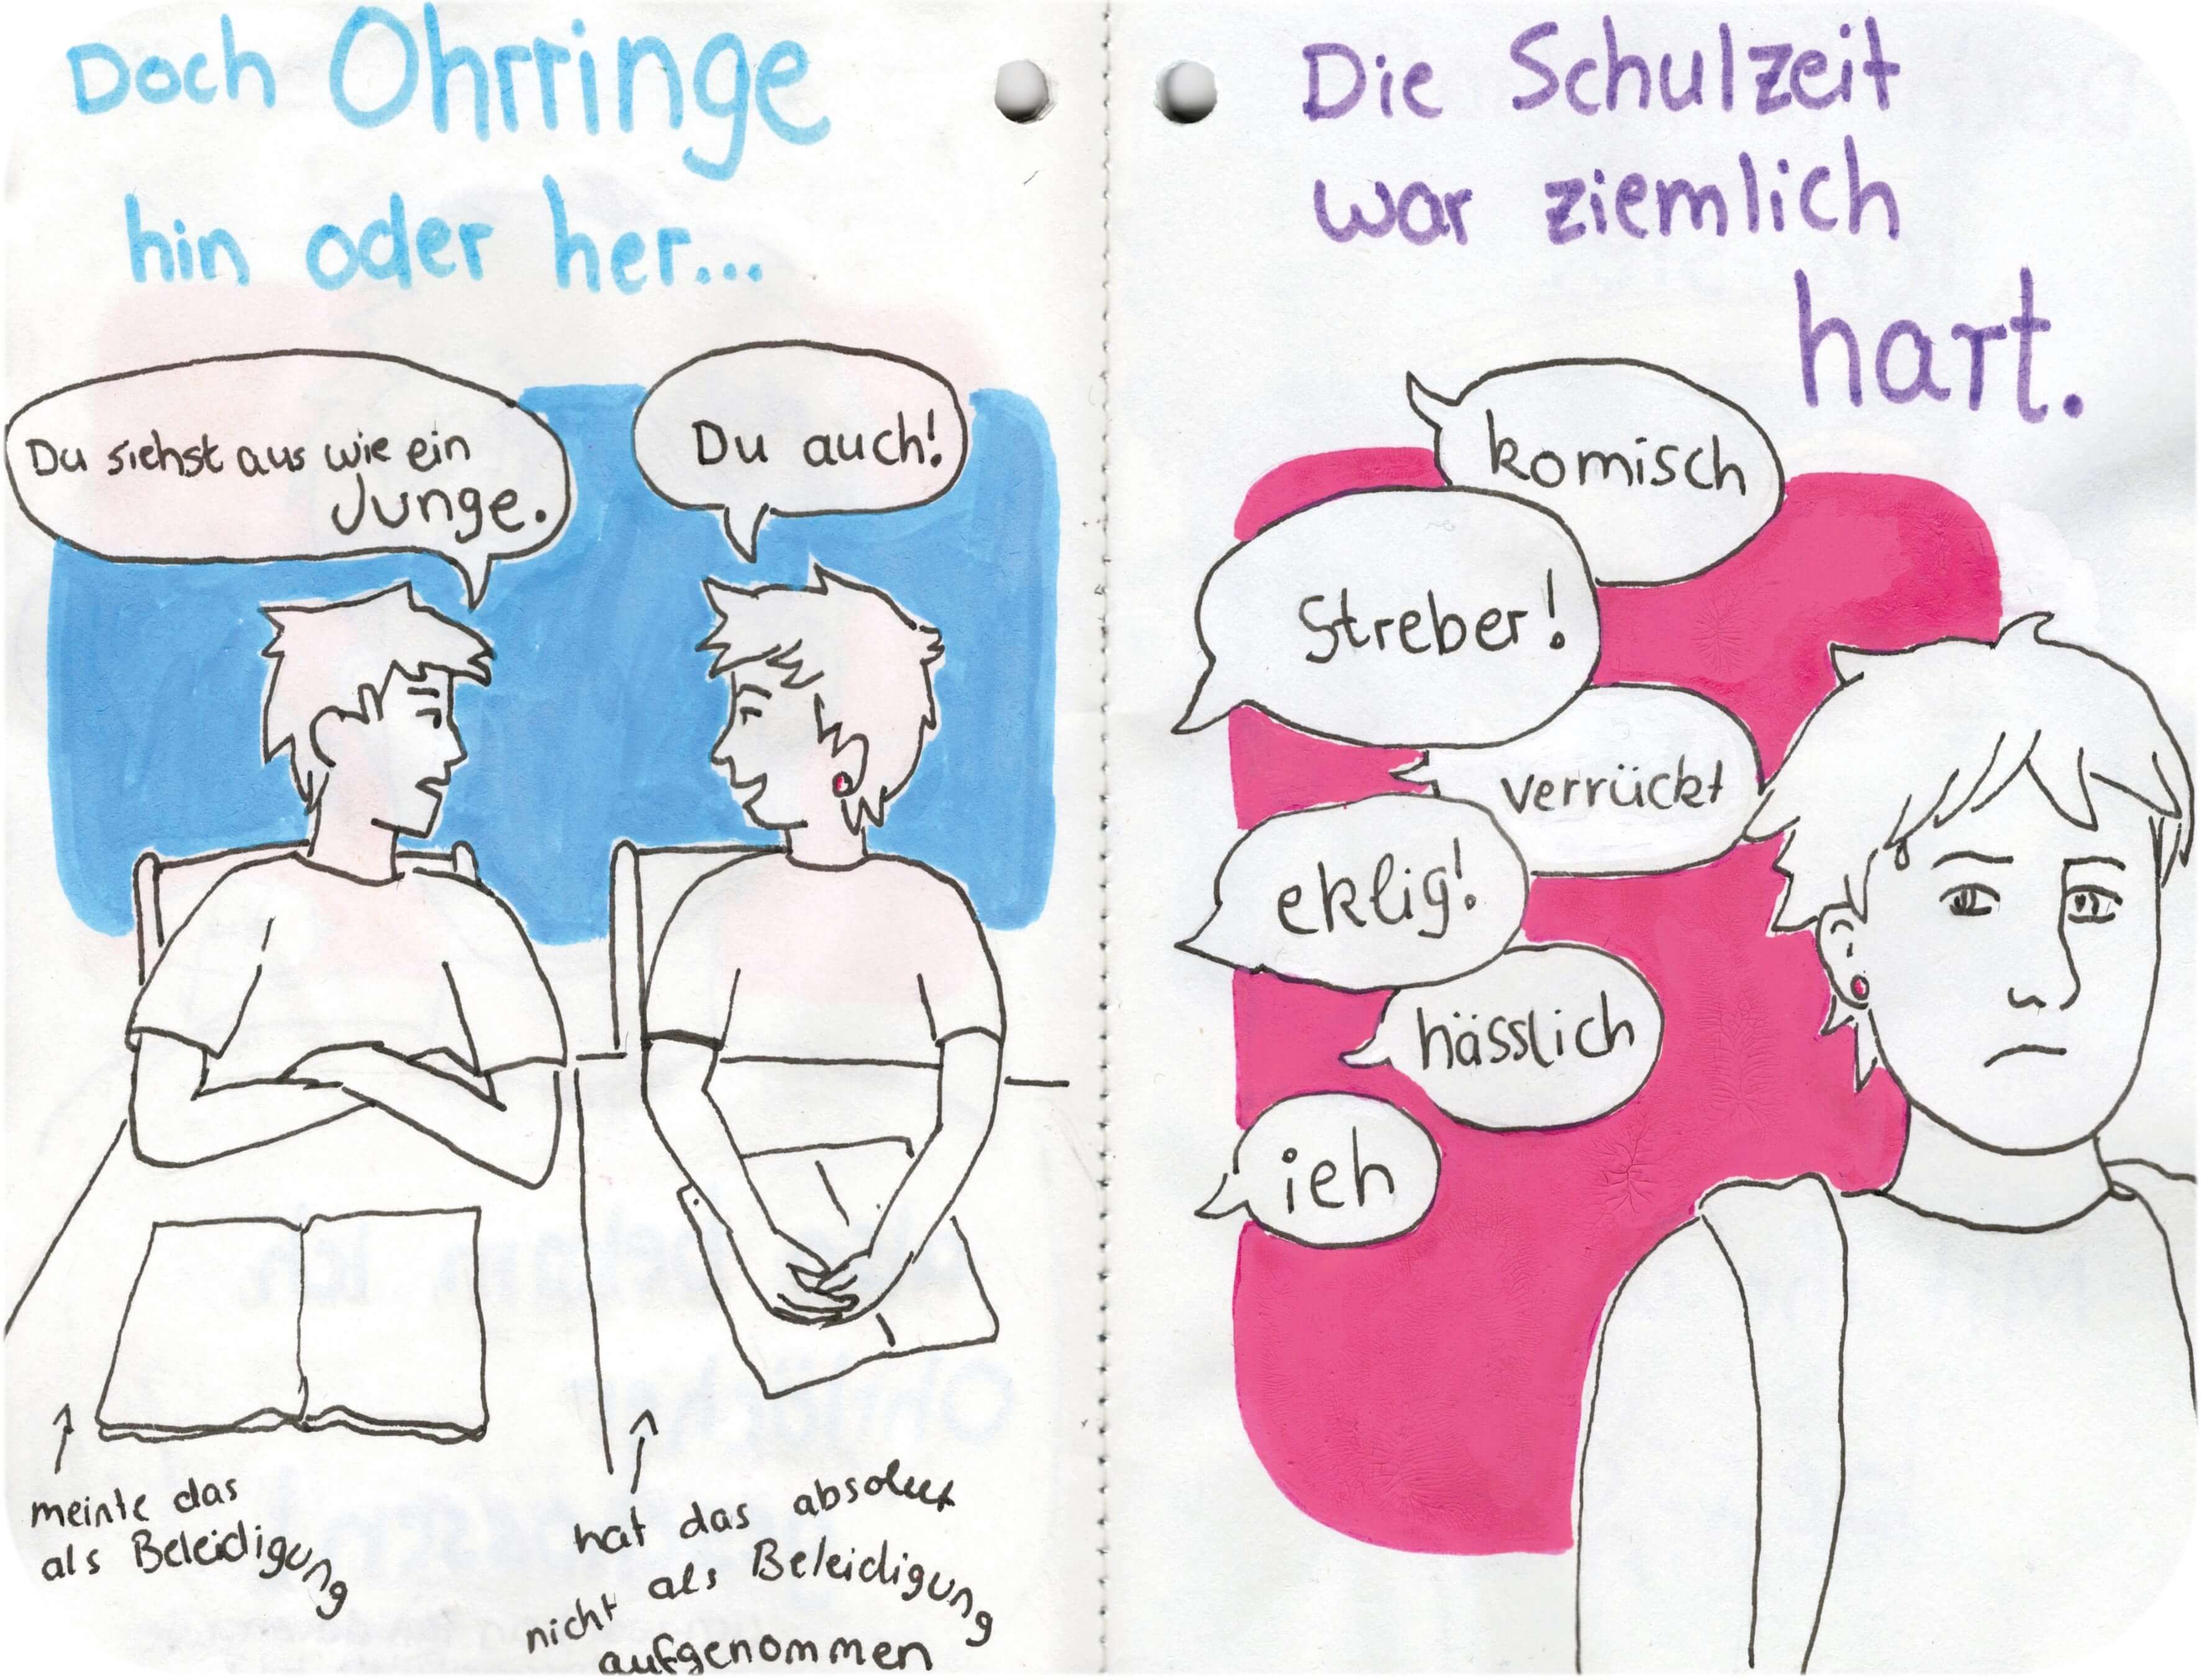 Doch Ohrringe
hin oder her...
Du siehst aus wie ein
Junge.
Du auch!
meinte das
als Beleidigung
hat das absolut
nicht als Beleidigung
aufgenommen
Die Schulzeit
war ziemlich
hart.
komisch
Streber!
verrückt
eklig!
hässlich
ieh